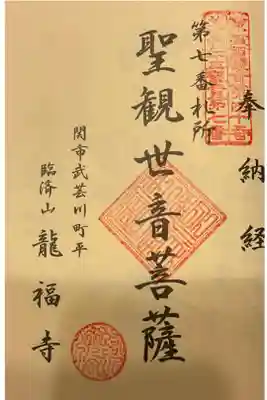 奉納経
第七番札所
聖観世音菩薩
関市武芸川町平
臨済山龍福寺